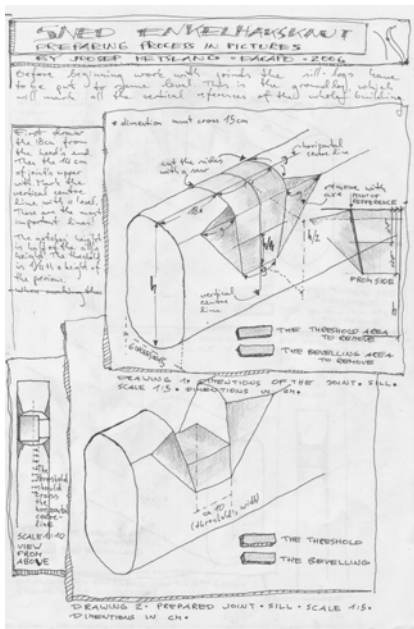 SNED ENKELHAKSKNUT
PREPARING PROCESS IN PICTURES
BY JOOSEP METSLANG • DACAPO • 2006
Before beginning work with joints the sill-logs have
to be put to same level. This is the groundlog which
will mark all the vertical references of the whole building
First draw
the 18cm from
the head's end.
Then the 14 cm
of joint's upper
with. Mark the
vertical centre
line with a level.
These are the most
important lines!
The notches height
is half of the log's
height. The threshold
is 1/4th's height of
the previous.
When marking the
* dimention must cross 15cm
horizontal
centre line
cut the sides
with a saw
remove with
axe
POINT OF
REFERENCE
18
h
h/4
h/2
FROM SIDE
vertical
centre
line
THE THRESHOLD AREA
TO REMOVE
THE BEVELLING AREA
TO REMOVE
DRAWING 1. DIMENTIONS OF THE JOINT. SILL.
SCALE 1:5. DIMENTIONS IN CM.
The
threshold
should
cross
the
horizontal
centre-
line
SCALE 1:10
VIEW
FROM
ABOVE
ca 10
(threshold's width)
THE THRESHOLD
THE BEVELLING
DRAWING 2. PREPARED JOINT. SILL. SCALE 1:5.
DIMENTIONS IN CM.